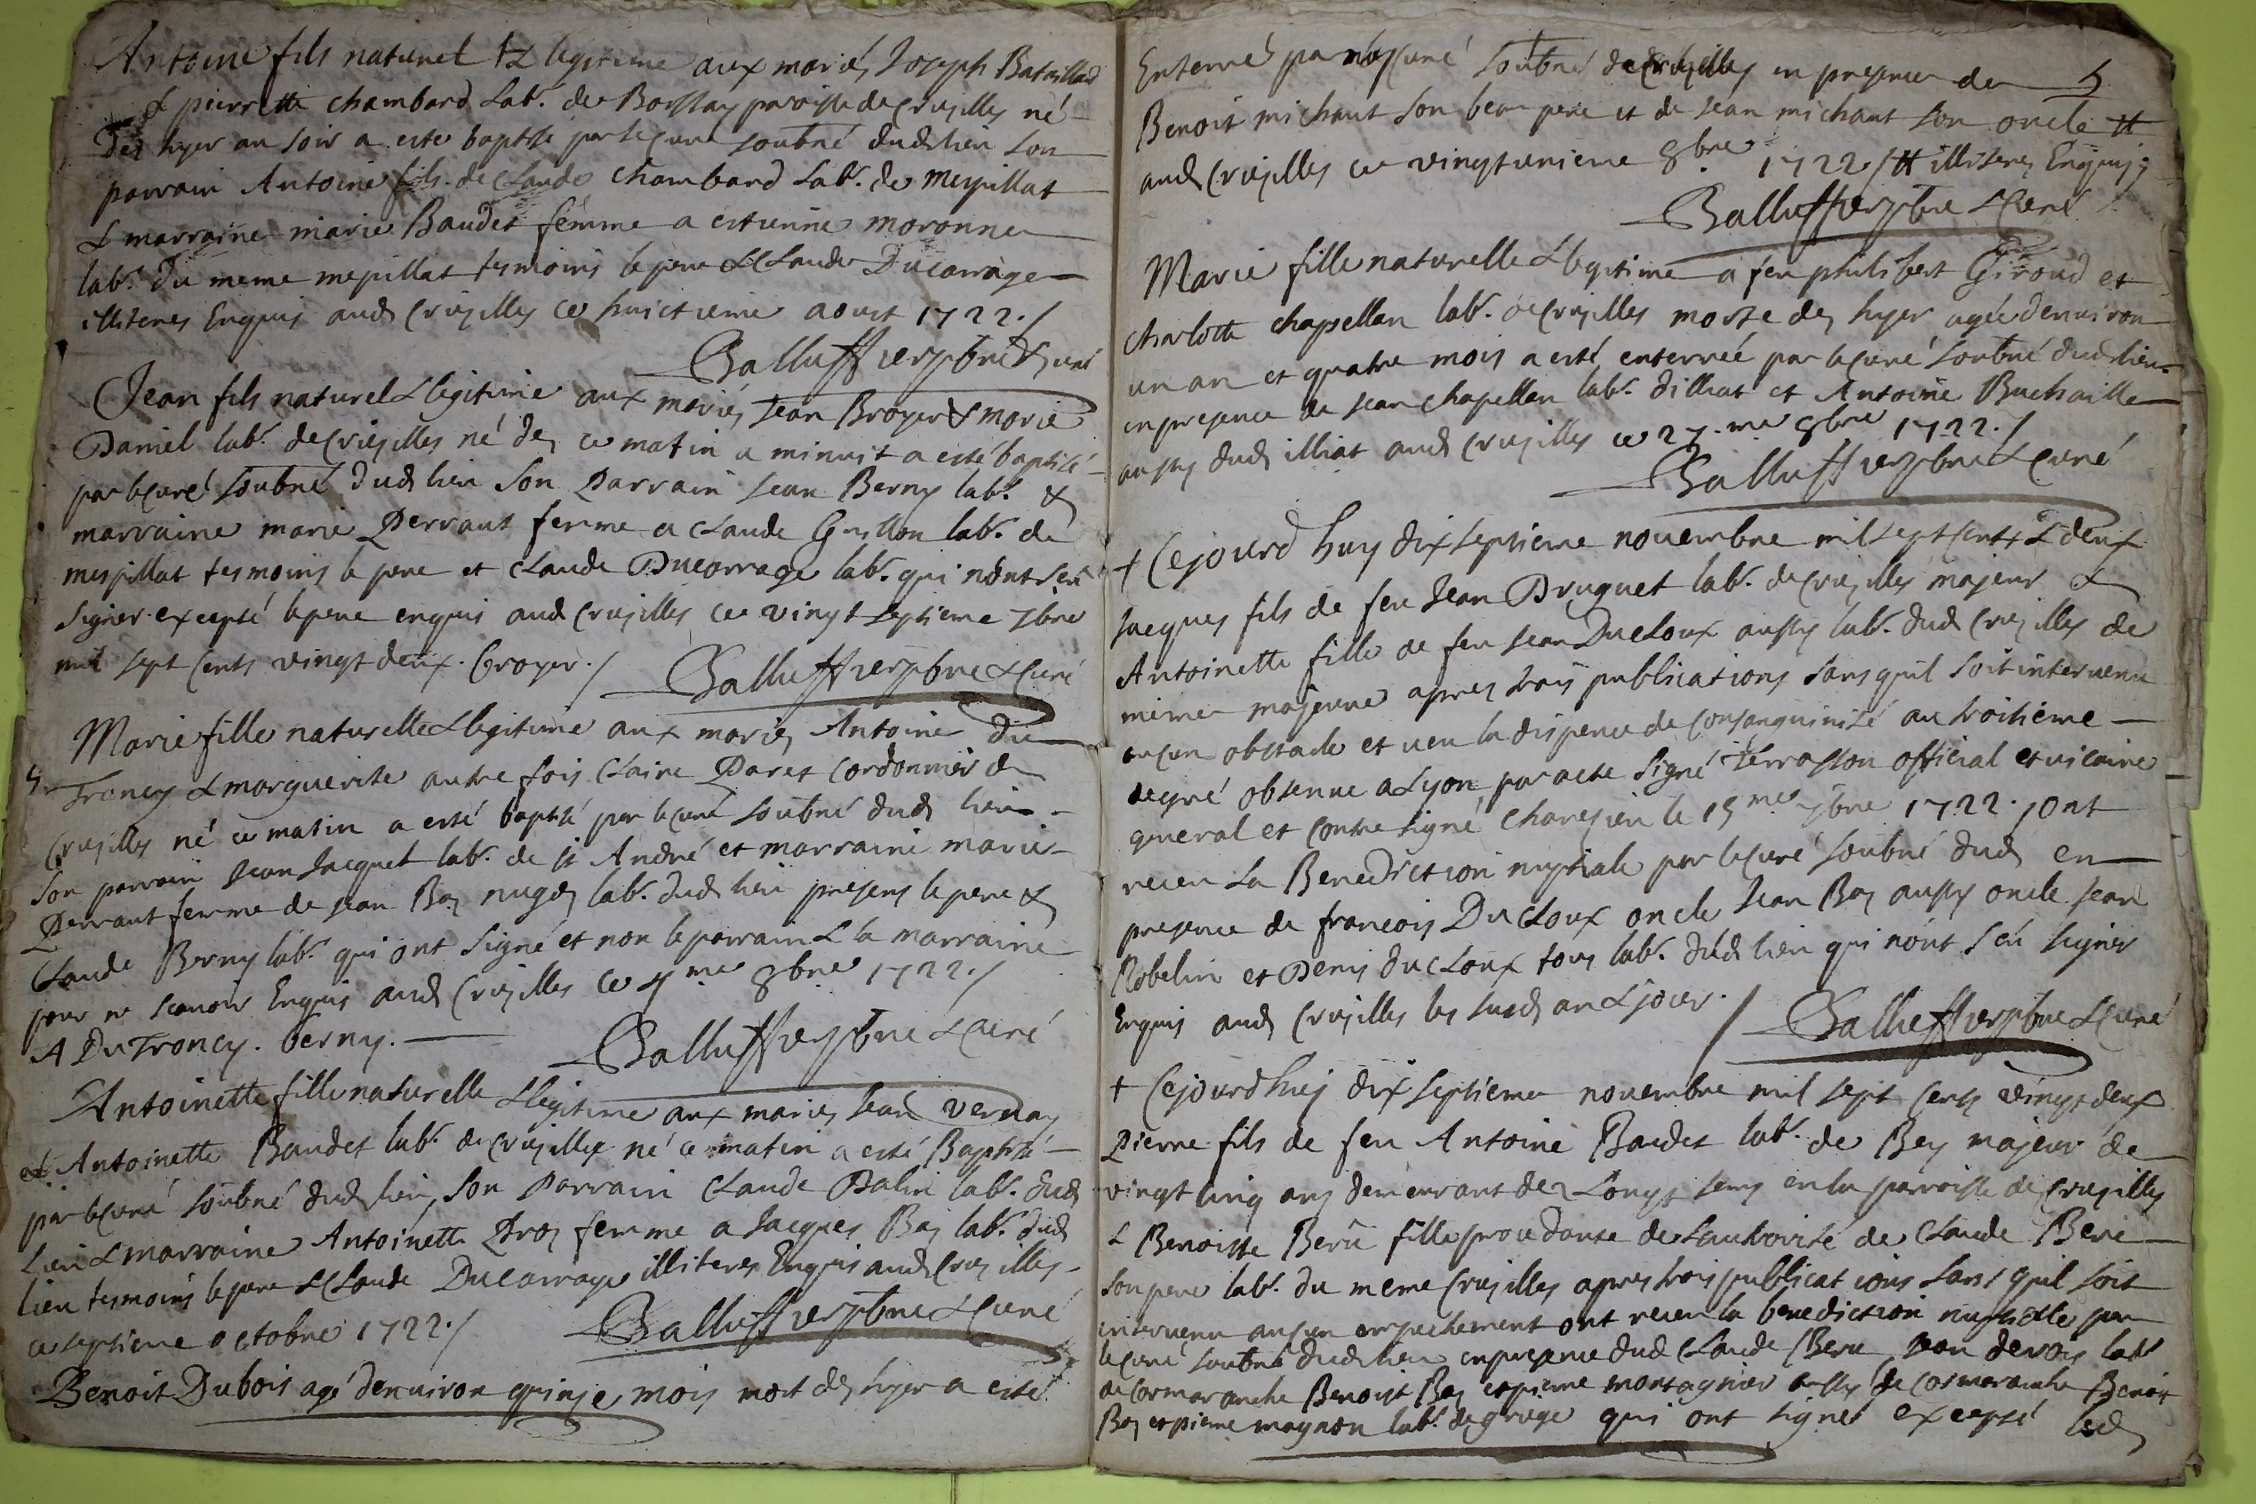 Antoine fils naturel & legitime aux mariés Joseph Bataillard
& pierrette chambard lab.r de Boissay paroisse de Crusilles né
des hyer au soir a esté baptisé par le curé soubné dud lieu son
parrain Antoine fils de Claude Chambard lab.r de mespillat
& marraine marie Baudet femme a estienne moronne
lab.r du meme mepillat tesmoins le pere & Claude Ducarrage
illiteres Enquis aud Crusilles ce huictieme aoust 1722./
Balluffier pbre & curé
Jean fils naturel & legitime aux mariés Jean Broyer & marie
Daniel lab.r de Crusilles né des ce matin a minuit a esté baptisé
par le curé soubné dud lieu son parrain Jean Berny lab.r &
marraine marie Perraut femme a Claude Guillon lab.r de
mespillat tesmoins le pere et Claude Ducarrage lab.r qui n'ont seu
signer excepté le pere enquis aud Crusilles ce vingt septieme 7bre
mil sept cents vingt deux. Broyer./ Balluffier pbre & curé
Marie fille naturelle & legitime aux mariés Antoine du
Troncy & marguerite autre fois Claire Paret cordonnier de
Crusilles né ce matin a esté baptisé par le curé soubné dud lieu
son parrain Jean Jacquet lab.r de st André et marraine marie
Perraut femme de Jean Bas lab.r dud lieu presens le pere &
Claude Berny lab.r qui ont signé et non le parrain & la marraine
pour ne scavoir Enquis aud Crusilles ce 4.me 8bre 1722./
A DuTroncy. berny. Balluffier pbre & curé
Antoinette fille naturelle & legitime aux mariés Jean Vernay
et Antoinette Baudet lab.r de Crusilles né ce matin a esté Baptisé
par le curé soubné dud lieu, son Parrain Claude Palin lab.r dud
lieu & marraine Antoinette Pros femme a Jacques Bas lab.r dud
lieu tesmoins le pere & Claude Ducarrage illiteres Enquis aud Crusilles
ce septieme octobre 1722./ Balluffier pbre & curé
Benoit Dubois agé denviron quinze mois mort des hyer a esté
Enterré par le curé soubné de Crusilles en presence de
Benoit michaut son beau pere et de Jean michaut son oncle #
aud Crusilles ce vingtunieme 8bre 1722/ # illiteres Enquis;
Balluffier pbre & curé
Marie fille naturelle & legitime a feu philibert Giroud et
Charlotte chapellan lab.r de Crusilles morte des hyer agée denviron
un an et quatre mois a esté enterrée par le curé soubné dud lieu
en presence de Jean chapellan lab.r dilliat et Antoine Buchaille
aussy dud illiat aud Crusilles ce 27.me 8bre 1722./
Balluffier pbre & curé
+ Cejourd huy dix septieme novembre mil sept cents & deux
Jacques fils de feu Jean Druguet lab.r de Crusilles majeur &
Antoinette fille de feu Jean Ducloux aussy lab.r dud Crusilles de
meme majeure apres trois publications sans quil soit intervenu
aucun obstacle et veu la dispence de consanguinité au troisieme
degré obtenue a Lyon par acte signé Terrasson official et vicaire
general et contre signé le 15.me 7bre 1722. ont
receu la Benediction nuptiale par le curé soubné dud en
presence de francois Ducloux oncle Jean Bas aussy oncle Jean
Robelin et Denis ducloux tous lab.r dud lieu qui n'ont seu signer
Enquis aud Crusilles les susd an & jour./ Balluffier pbre & curé
+ Cejourdhuy dix septieme novembre mil sept cents vingt deux
Pierre fils de feu Antoine Baudet lab.r de Bey majeur de
vingt cinq ans demeurant des Longs tems en la parroisse de Crusilles
& Benoiste Beru fille procedante de l'authorité de Claude Beru
son pere lab.r du meme Crusilles apres trois publications sans quil soit
intervenu aucun empechement ont receu la benediction nuptialle par
le curé soubné dud lieu en presence dud Claude Beru lab.r
de Cormaranche Benoist Bas et pierre montagnier aussy de cormaranche Benoit
Bas et pierre magnon lab.r de gruge qui ont signé excepté led